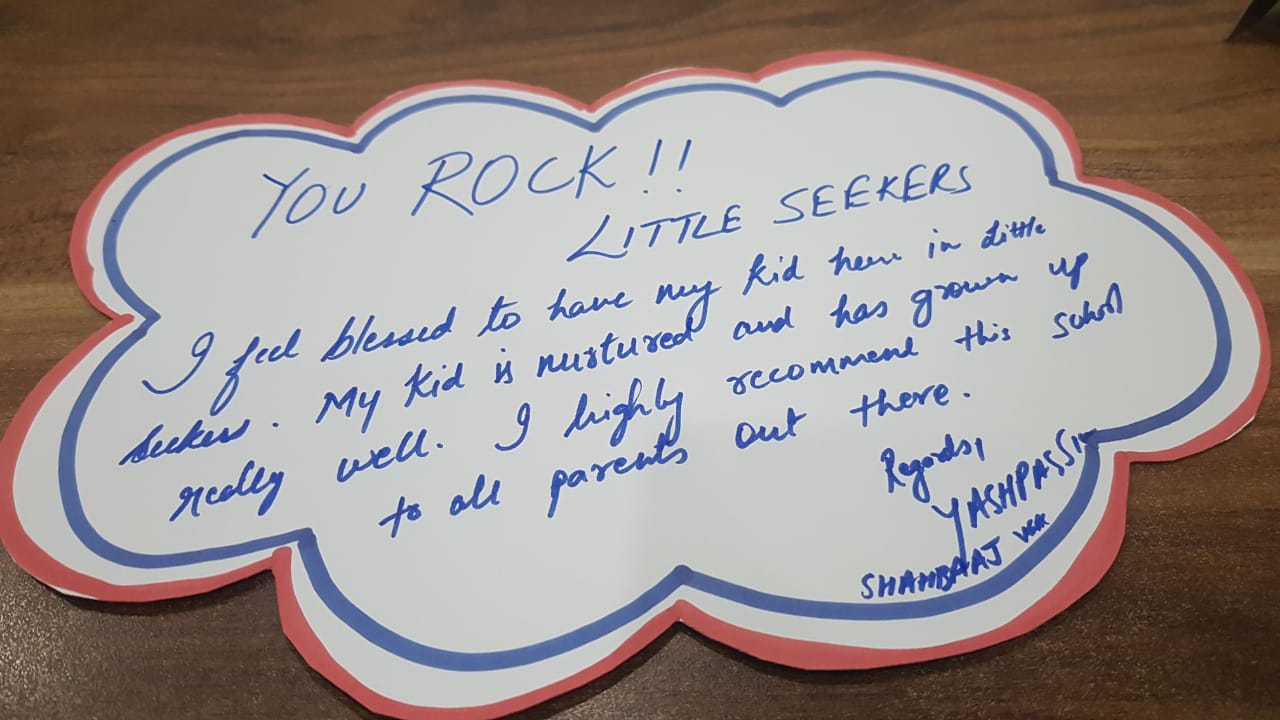 YOU ROCK!!
LITTLE SEEKERS
I feel blessed to have my kid here in Little
Seekers. My kid is nurtured and has grown up
really well. I highly recommend this school
to all parents out there.
Regards,
SHAHBAAJ